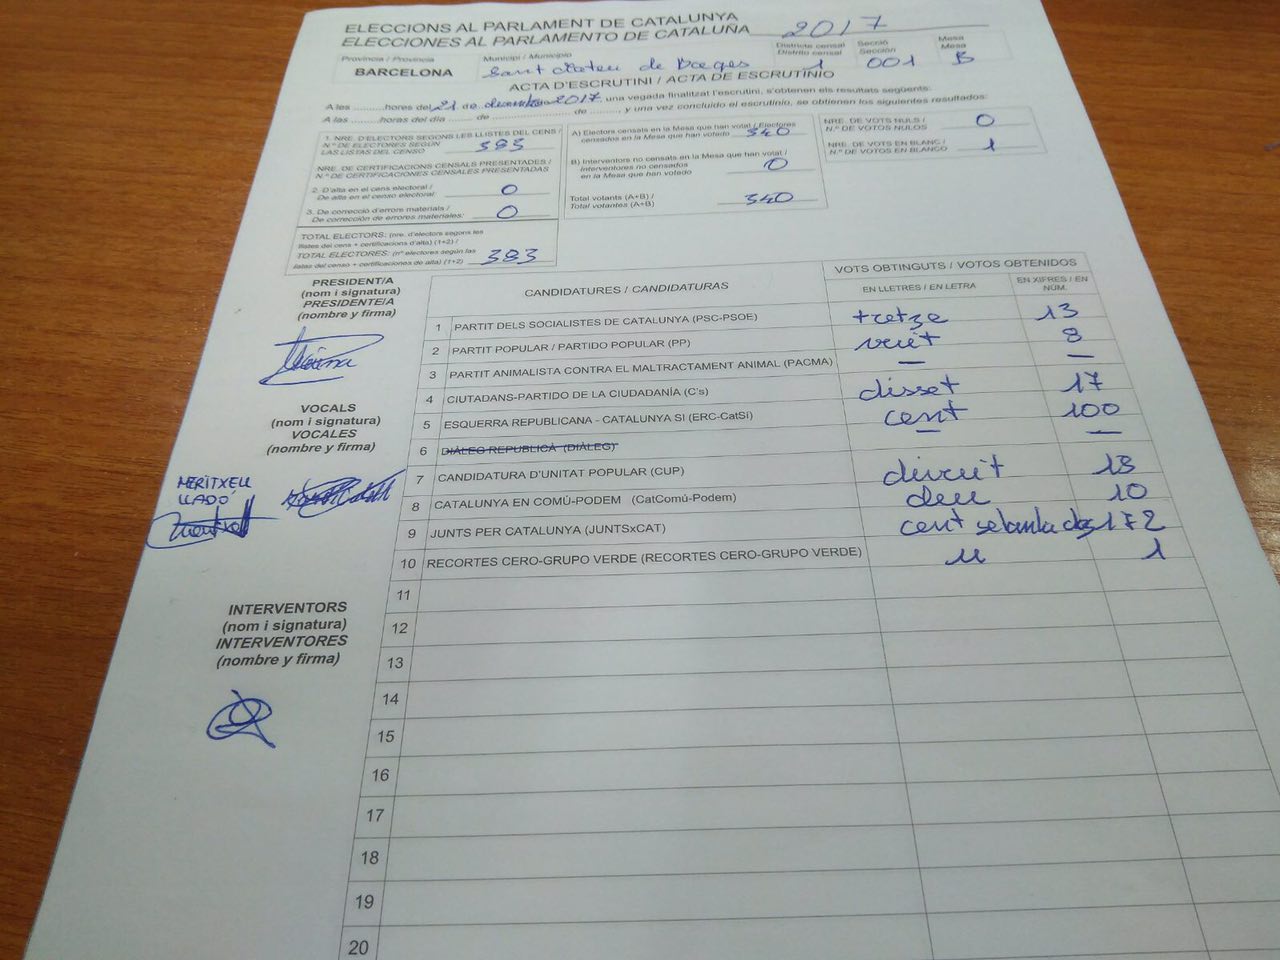 ELECCIONS AL PARLAMENT DE CATALUNYA
ELECCIONES AL PARLAMENTO DE CATALUÑA 2017
Província / Provincia Municipi / Municipio Districte censal Secció Mesa
Distrito censal Sección Mesa
BARCELONA Sant Mateu de Bages 1 001 B
ACTA D'ESCRUTINI / ACTA DE ESCRUTINIO
A les ..........hores del 21 de desembre 2017, una vegada finalitzat l'escrutini, s'obtenen els resultats següents:
A las ..........horas del día ........ de ........................ de .........., y una vez concluido el escrutinio, se obtienen los siguientes resultados:
1. NRE. D'ELECTORS SEGONS LES LLISTES DEL CENS /
N.º DE ELECTORES SEGÚN
LAS LISTAS DEL CENSO 383
NRE. DE CERTIFICACIONS CENSALS PRESENTADES /
N.º DE CERTIFICACIONES CENSALES PRESENTADAS
2. D'alta en el cens electoral /
De alta en el censo electoral: 0
3. De correcció d'errors materials /
De corrección de errores materiales: 0
TOTAL ELECTORS: (nre. d'electors segons les
llistes del cens + certificacions d'alta) (1+2) /
TOTAL ELECTORES: (nº electores según las
listas del censo + certificaciones de alta) (1+2) 383
A) Electors censats en la Mesa que han votat / Electores
censados en la Mesa que han votado 340
B) Interventors no censats en la Mesa que han votat /
Interventores no censados
en la Mesa que han votado 0
Total votants (A+B) /
Total votantes (A+B) 340
NRE. DE VOTS NULS /
N.º DE VOTOS NULOS 0
NRE. DE VOTS EN BLANC /
N.º DE VOTOS EN BLANCO 1
PRESIDENT/A
(nom i signatura)
PRESIDENTE/A
(nombre y firma)
VOCALS
(nom i signatura)
VOCALES
(nombre y firma)
MERITXELL
LLADÓ
INTERVENTORS
(nom i signatura)
INTERVENTORES
(nombre y firma)
CANDIDATURES / CANDIDATURAS VOTS OBTINGUTS / VOTOS OBTENIDOS
EN LLETRES / EN LETRA EN XIFRES / EN NÚM.
1 PARTIT DELS SOCIALISTES DE CATALUNYA (PSC-PSOE) tretze 13
2 PARTIT POPULAR / PARTIDO POPULAR (PP) vuit 8
3 PARTIT ANIMALISTA CONTRA EL MALTRACTAMENT ANIMAL (PACMA) — —
4 CIUTADANS-PARTIDO DE LA CIUDADANÍA (C's) disset 17
5 ESQUERRA REPUBLICANA - CATALUNYA SÍ (ERC-CatSí) cent 100
6 DIÀLEG REPUBLICÀ (DIÀLEG) — —
7 CANDIDATURA D'UNITAT POPULAR (CUP) divuit 18
8 CATALUNYA EN COMÚ-PODEM (CatComú-Podem) deu 10
9 JUNTS PER CATALUNYA (JUNTSxCAT) cent setanta dos 172
10 RECORTES CERO-GRUPO VERDE (RECORTES CERO-GRUPO VERDE) u 1
11
12
13
14
15
16
17
18
19
20